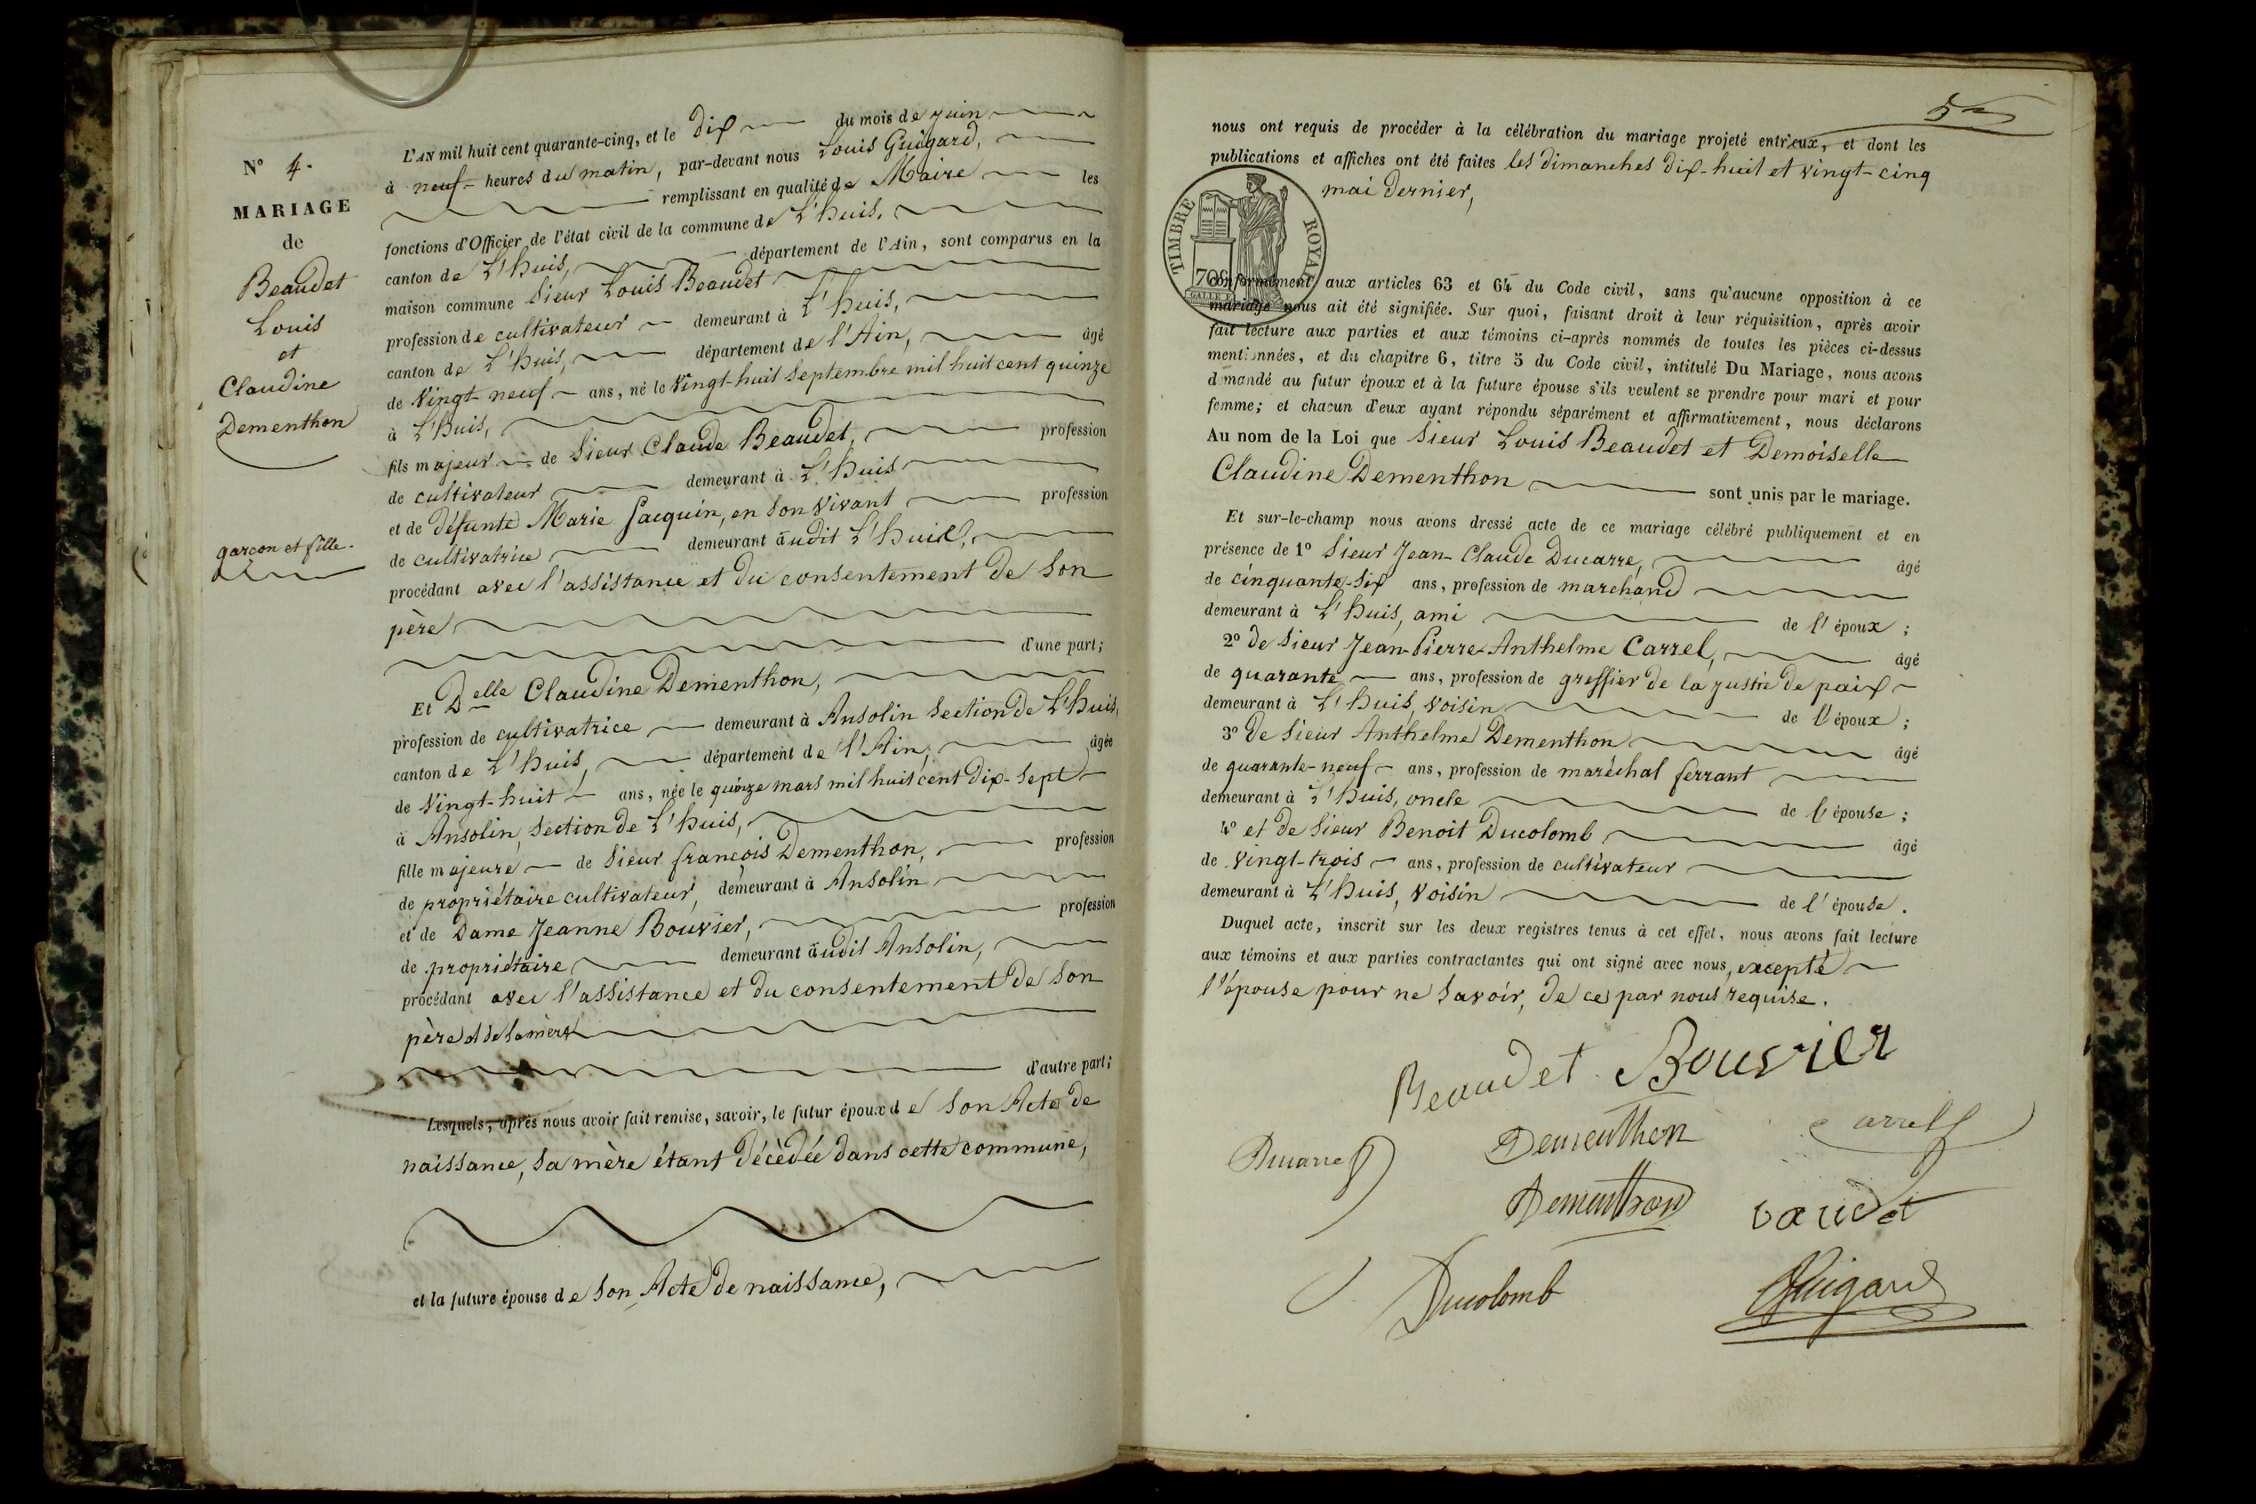 N° 4.
MARIAGE
de
Beaudet
Louis
et
Claudine
Dementhon
garçon et fille.
L'AN mil huit cent quarante-cinq, et le dix du mois de juin
à neuf heures du matin, par-devant nous Louis Guigard,
remplissant en qualité de Maire les
fonctions d'Officier de l'état civil de la commune de L'huis,
canton de L'huis, département de l'Ain, sont comparus en la
maison commune Sieur Louis Beaudet
profession de cultivateur demeurant à L'huis,
canton de L'huis, département de l'Ain, âgé
de vingt-neuf ans, né le vingt-huit septembre mil huit cent quinze
à L'huis,
fils majeur de Sieur Claude Beaudet, profession
de cultivateur demeurant à L'huis
et de défunte Marie Jacquin, en son vivant profession
de cultivatrice demeurant audit L'huis,
procédant avec l'assistance et du consentement de son
père
d'une part;
Et Delle Claudine Dementhon,
profession de cultivatrice demeurant à Ansolin section de L'huis,
canton de L'huis, département de l'Ain, âgée
de vingt-huit ans, née le quinze mars mil huit cent dix-sept
à Ansolin, section de L'huis,
fille majeure de Sieur françois Dementhon, profession
de propriétaire cultivateur, demeurant à Ansolin
et de Dame Jeanne Bouvier, profession
de propriétaire demeurant audit Ansolin,
procédant avec l'assistance et du consentement de son
père et de sa mère
d'autre part;
Lesquels, après nous avoir fait remise, savoir, le futur époux de son Acte de
naissance, sa mère étant décédée dans cette commune,
et la future épouse de son Acte de naissance,
5
nous ont requis de procéder à la célébration du mariage projeté entr'eux, et dont les
publications et affiches ont été faites les dimanches dix-huit et vingt-cinq
mai dernier,
TIMBRE ROYAL
70c
conformément aux articles 63 et 64 du Code civil, sans qu'aucune opposition à ce
mariage nous ait été signifiée. Sur quoi, faisant droit à leur réquisition, après avoir
fait lecture aux parties et aux témoins ci-après nommés de toutes les pièces ci-dessus
mentionnées, et du chapitre 6, titre 5 du Code civil, intitulé Du Mariage, nous avons
demandé au futur époux et à la future épouse s'ils veulent se prendre pour mari et pour
femme; et chacun d'eux ayant répondu séparément et affirmativement, nous déclarons
Au nom de la Loi que Sieur Louis Beaudet et Demoiselle
Claudine Dementhon sont unis par le mariage.
Et sur-le-champ nous avons dressé acte de ce mariage célébré publiquement et en
présence de 1° Sieur Jean-Claude Ducarre, âgé
de cinquante-six ans, profession de marchand
demeurant à L'huis, ami de l'époux ;
2° de Sieur Jean-Pierre-Anthelme Carrel, âgé
de quarante ans, profession de greffier de la justice de paix
demeurant à L'huis, voisin de l'époux ;
3° de Sieur Anthelme Dementhon âgé
de quarante-neuf ans, profession de maréchal ferrant
demeurant à L'huis, oncle de l'épouse ;
4° et de Sieur Benoit Ducolomb âgé
de vingt-trois ans, profession de cultivateur
demeurant à L'huis, voisin de l'épouse.
Duquel acte, inscrit sur les deux registres tenus à cet effet, nous avons fait lecture
aux témoins et aux parties contractantes qui ont signé avec nous, excepté
l'épouse pour ne savoir, de ce par nous requise.
Beaudet Bouvier
Ducarre Dementhon Carrel
Dementhon vaudet
Ducolomb Guigard